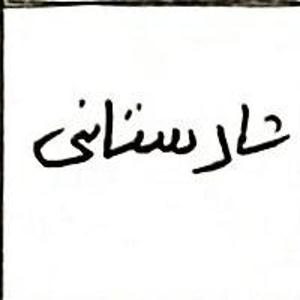 شارستانی